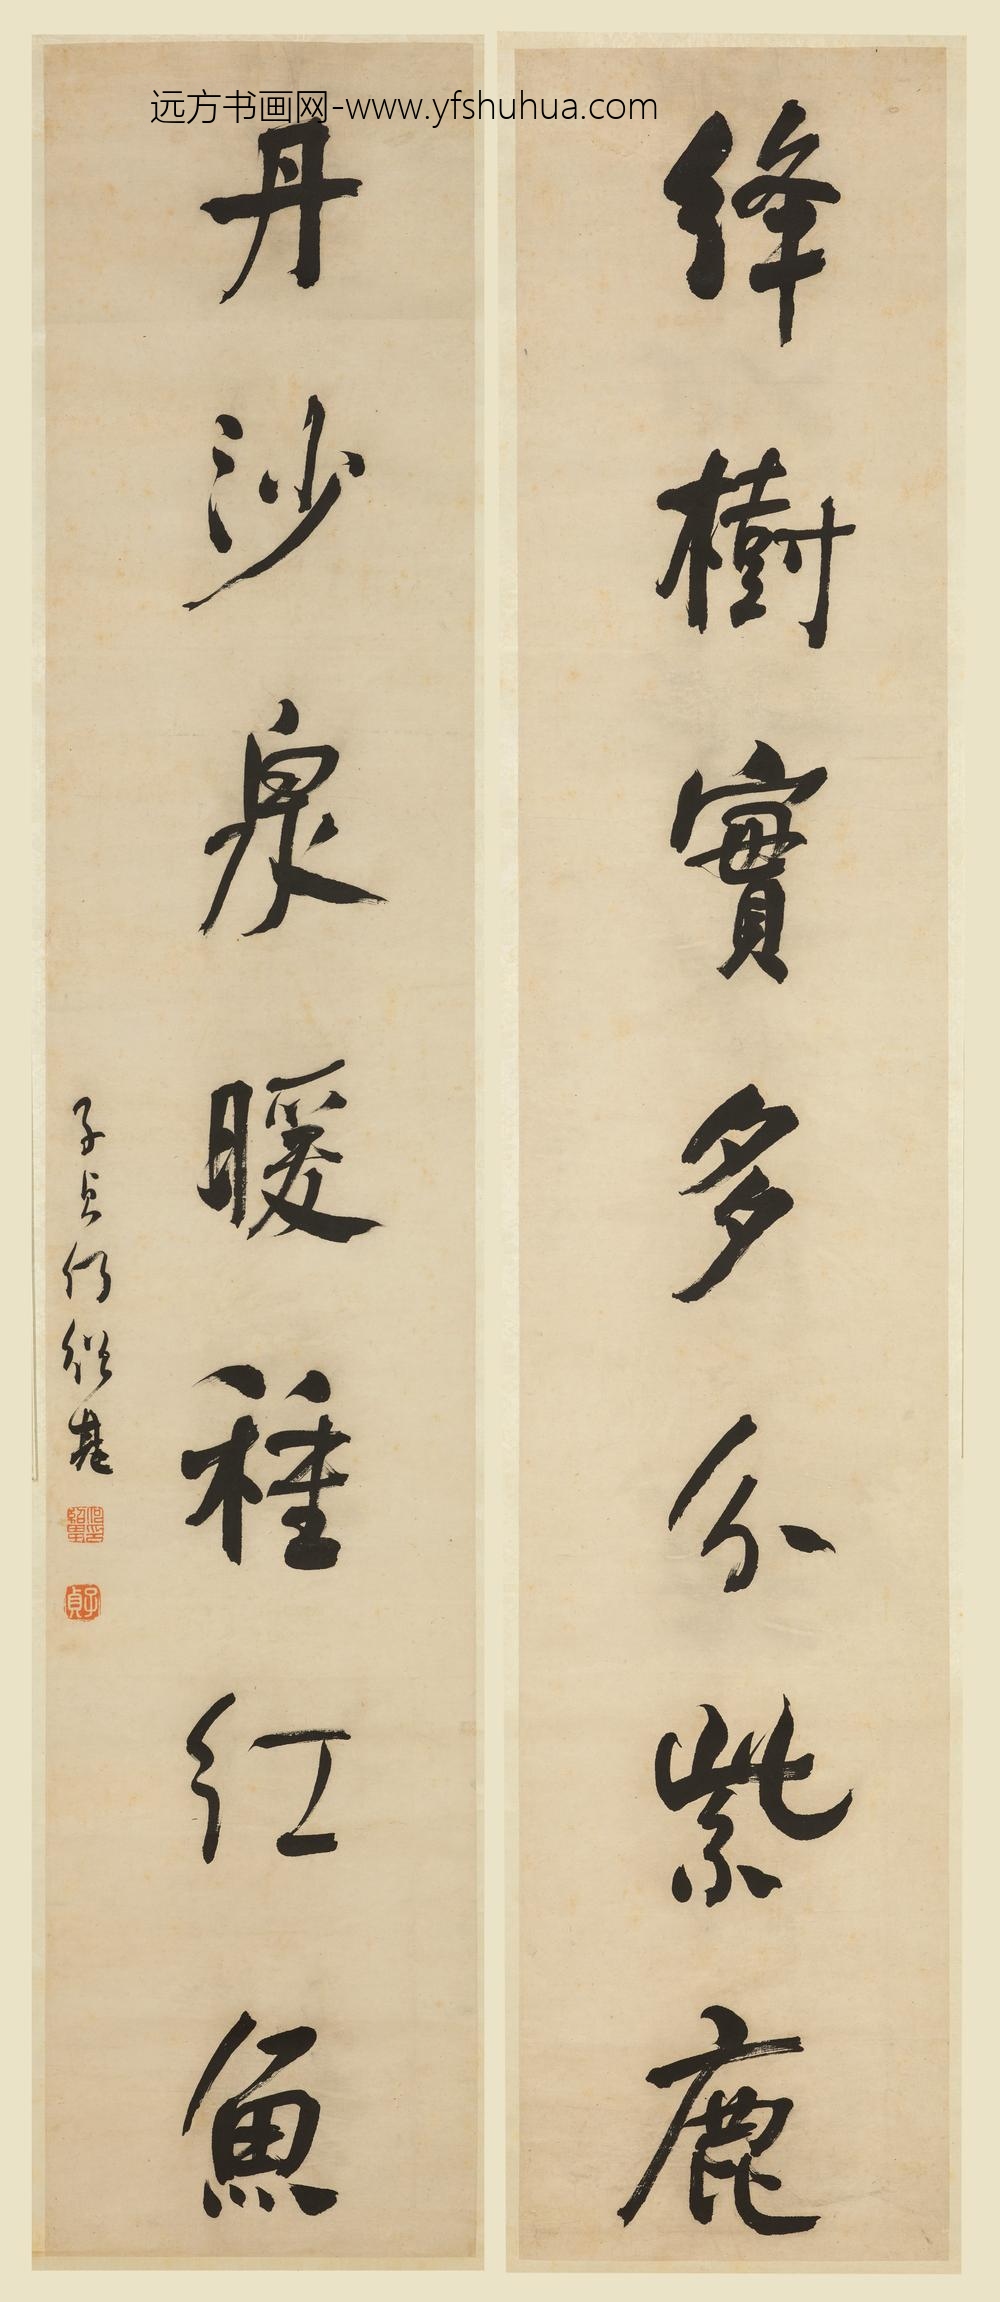 远方书画网-www.yfshuhua.com
绛樹實多分紫鹿
丹沙泉暖種紅魚
子貞何紹基
何紹基印
子貞